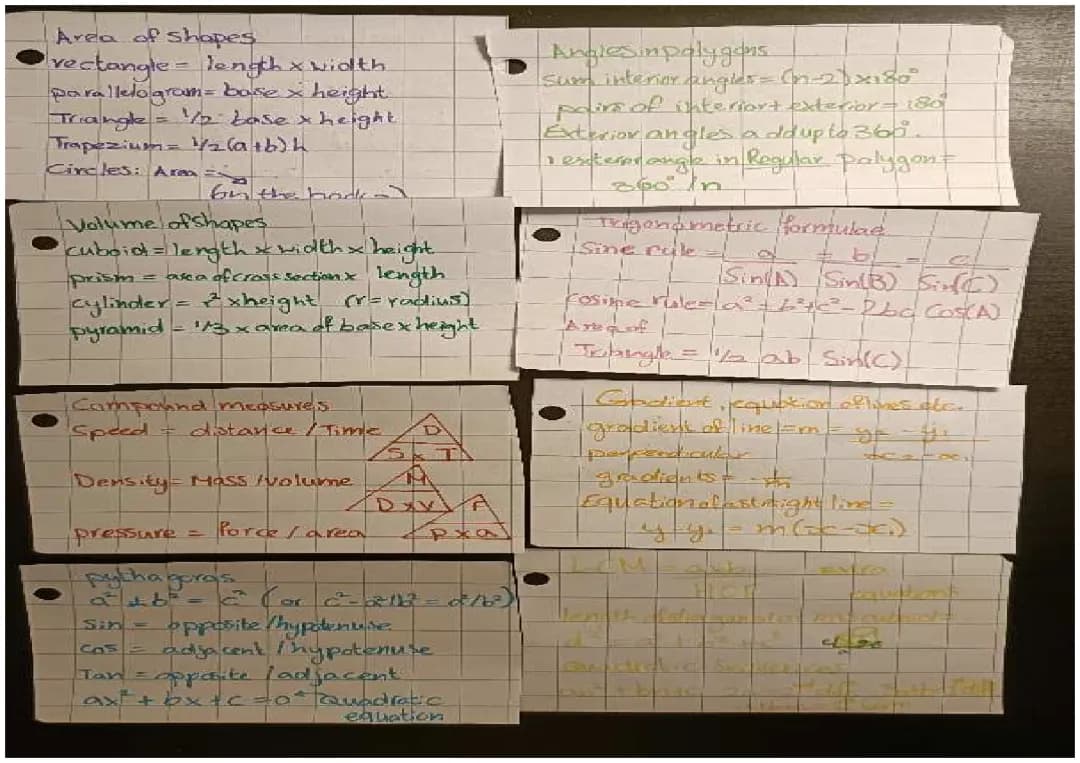 Area of shapes
rectangle = length x width
parallelogram = base x height
Triangle = 1/2 base x height
Trapezium = 1/2 (a+b) h
Circles: Area =
(on the back →)
Angles in polygons
Sum interior angles = (n-2) x 180°
pairs of interior + exterior = 180°
Exterior angles add up to 360°.
1 exterior angle in Regular polygon =
360° / n
Volume of shapes
cuboid = length x width x height
prism = area of cross section x length
cylinder = r² x height (r = radius)
pyramid = 1/3 x area of base x height
Trigonometric formulae
Sine rule = a = b = c
Sin(A) Sin(B) Sin(C)
Cosine rule = a² = b² + c² - 2bc Cos(A)
Area of
Triangle = 1/2 ab Sin(C)
Compound measures
Speed = distance / Time
D
S x T
Density = Mass / volume
M
D x V
pressure = Force / area
F
P x a
Gradient, equation of lines etc.
gradient of line = m = y₂ - y₁
x₂ - x₁
perpendicular
gradients = -1/m
Equation of a straight line =
y - y₁ = m(x - x₁)
pythagoras
a² + b² = c² (or c² - a²/b² = a²/b²)
Sin = opposite / hypotenuse
Cos = adjacent / hypotenuse
Tan = opposite / adjacent
ax² + bx + c = 0 ← Quadratic
equation
LCM = axb extra
HCF equations